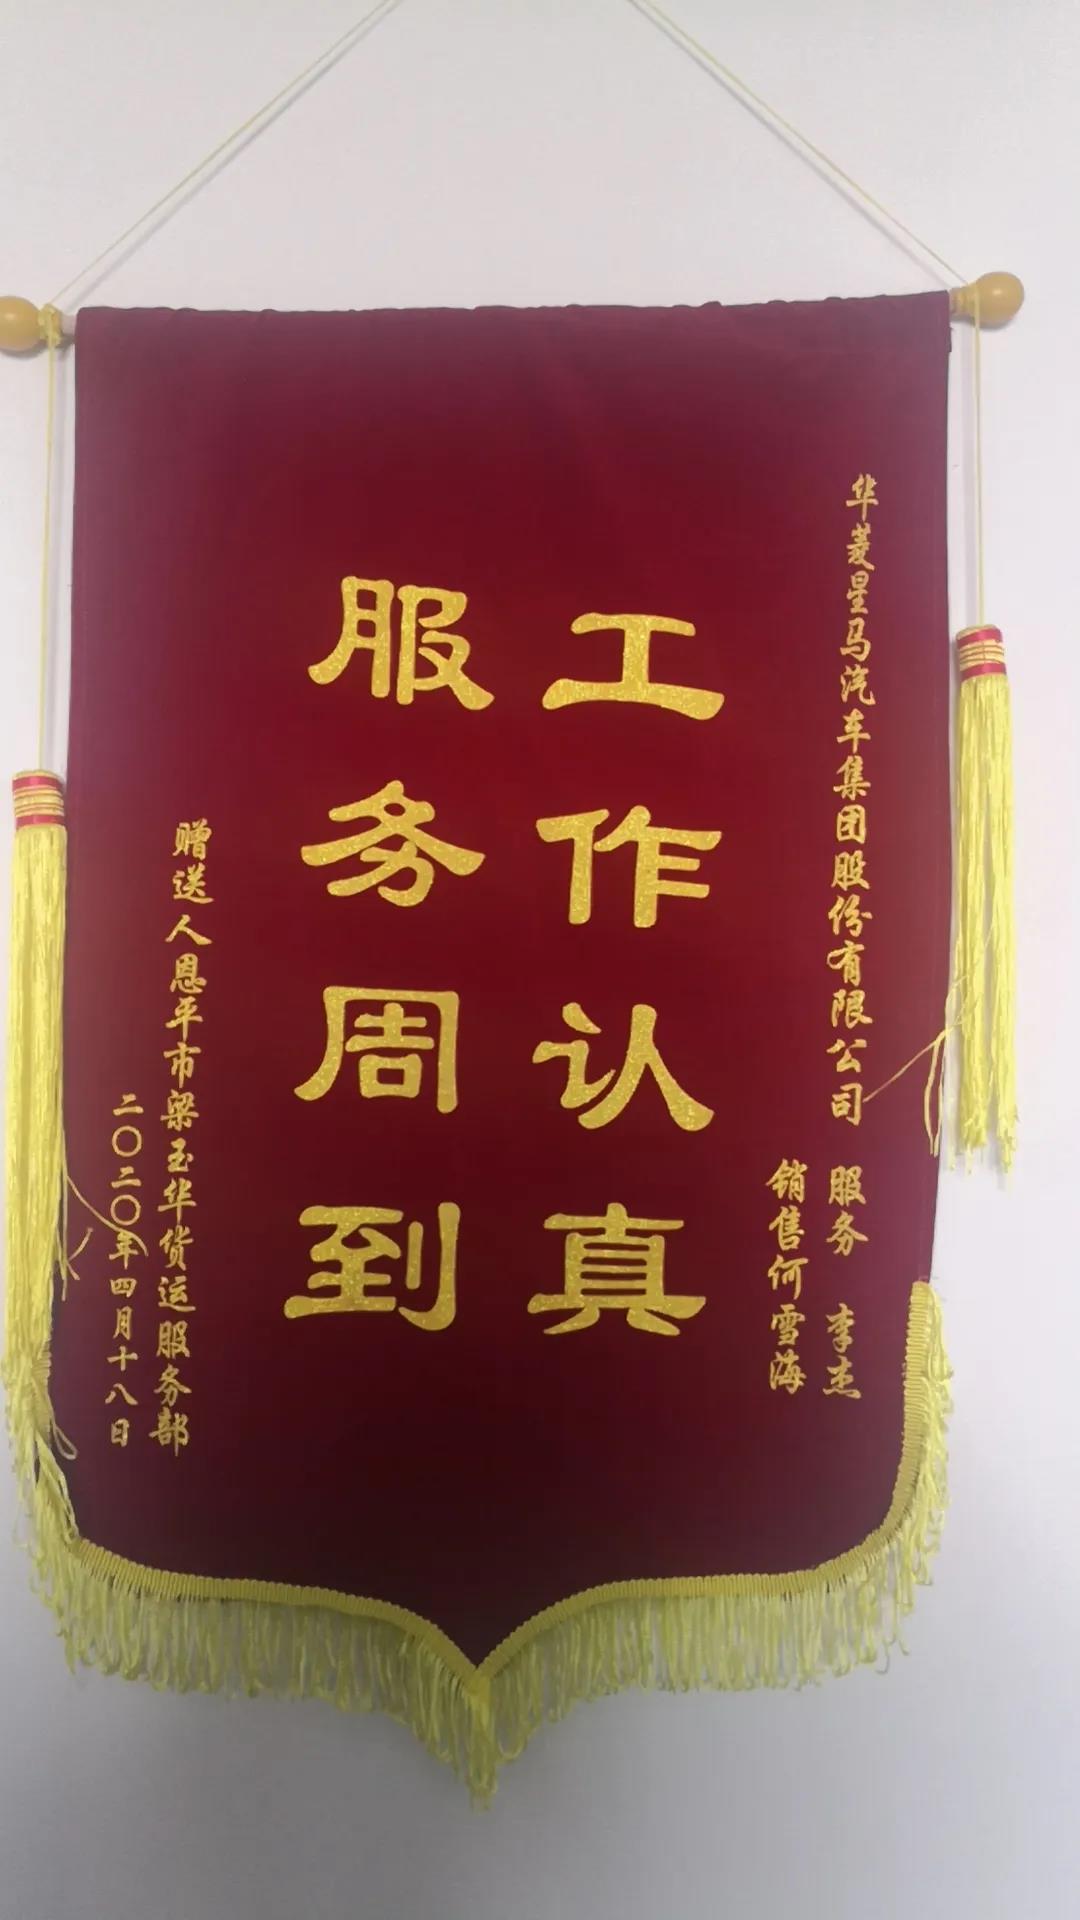 华菱星马汽车集团股份有限公司 服务 李杰
销售何雪海
工作认真
服务周到
赠送人恩平市梁玉华货运服务部
二〇二〇年四月十八日